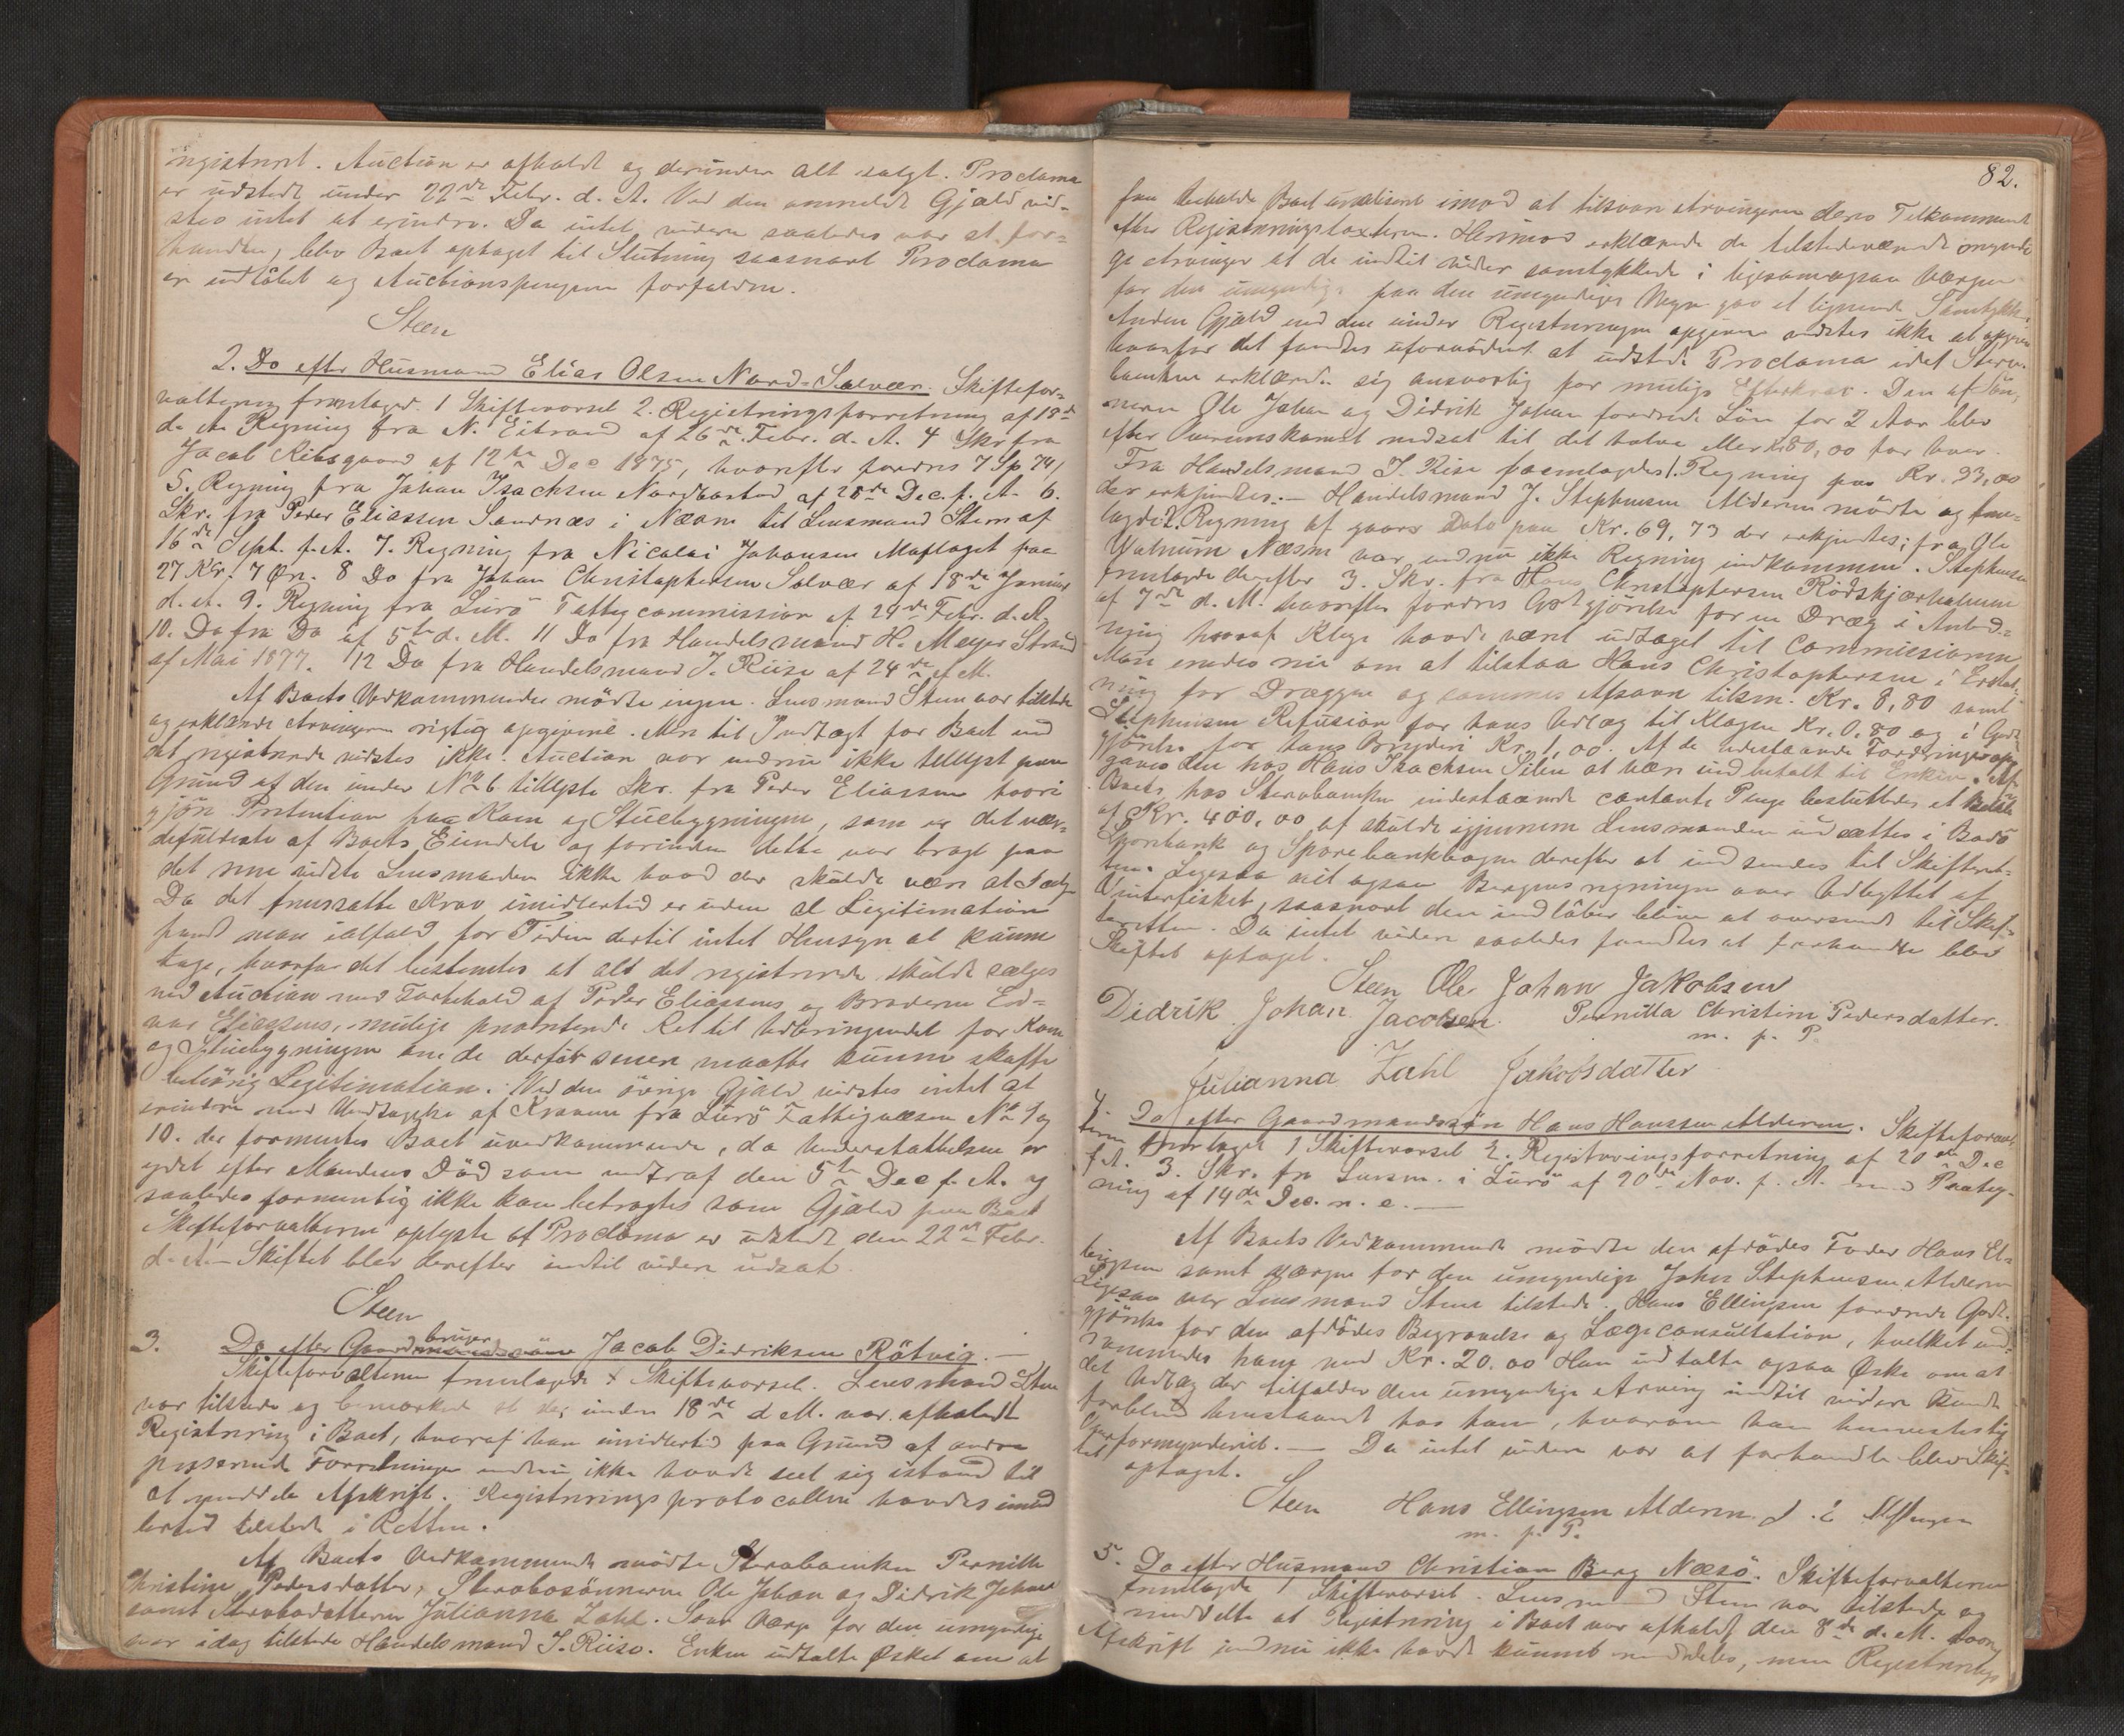 registreret. Auction er afholdt og derunder alt solgt. Proclama
er udstedt under 22de Febr. d. A. Ved den anmeldte Gjæld vid-
stes intet at erindre. Da intet videre saaledes var at for-
handle, blev Boet optaget til Slutning saasnart Proclama
er udløbet og Auctionspengene forfaldne.
Steen
2. Do efter Husmand Elias Olsen Nord-Solvær. Skiftefor-
valteren fremlagde 1 Skiftevarsel 2. Registreringsforretning af 18de
d. A. Regning fra N. Eitrand af 26de Febr. d. A. 4 Skr fra
Jacob Kibsgaard af 12te Dec 1875, hvorefter fordres 7 Sp 74,
5. Regning fra Johan Isachsen Nordbostad af 28de Dec. f. A. 6.
Skr. fra Peder Eliassen Sandnæs i Næsne til Lensmand Steen af
16de Sept. f. A. 7. Regning fra Nicolai Johansen Moflaget paa
27 Kr. 7 Øre. 8 Do fra Johan Christophersen Solvær af 18de Januar
d. A. 9. Regning fra Lurö Fattigcommission af 24de Febr. d. A.
10. Do fra Do af 5te d. M. 11 Do fra Handelsmand H. Meyer Strand
af Mai 1877. 12 Do fra Handelsmand J. Riise af 24de f. M.
Af Boets Vedkommende mödte ingen. Lensmand Steen var tilstede
og erklærede Arvingerne rigtig opgivne. Mere til Indtægt for Boet end
det registrerede vidstes ikke. Auction var endnu ikke tillyst paa
Grund af den under No 6 tillyste Skr. fra Peder Eliassen hvori
gjöres Prætention paa Koen og Stuebygningen, som er det vær-
defuldeste af Boets Eiendele og forinden dette var bragt paa
det rene vidste Lensmanden ikke hvad der skulde være at sælge
Da det fremsatte Krav imidlertid er uden al Legitimation
fandt man ialfald for Tiden dertil intet Hensyn at kunne
tage, hvorfor det bestemtes at alt det registrerede skulde sælges
ved Auction med Forbehold af Peder Eliassens og Broderen Ed-
vas Eliassens, mulige prætenderede Ret til Udbringendet for Koen
og Stuebygningen om de derfor senere maatte kunne skaffe
behörig Legitimation. Ved den övrige Gjæld vidstes intet at
erindre med Undtagelse af Kravene fra Lurö Fattigvæsen No 9 og
10. der formentes Boet uvedkommende, da Understöttelsen er
ydet efter Mandens Död som indtraf den 5te Dec f. A. og
saaledes formentlig ikke kan betragtes som Gjæld paa Boet
Skifteforvalteren oplyste at Proclama er udstedt den 22de Febr.
d. A. – Skiftet blev derefter indtil videre udsat
Steen
3. Do efter Gaardbruger Jacob Didriksen Rötvig. –
Skifteforvalteren fremlagde 1 Skiftevarsel. Lensmand Steen
var tilstede og bemærkede at der under 18de d. M. var afholdt
Registrering i Boet, hvoraf han imidlertid paa Grund af andre
presserende Forretninger endnu ikke havde seet sig istand til
at meddele Afskrift. Registreringsprotocollen havdes imid-
lertid tilstede i Retten.
Af Boets Vedkommende mödte Stervboenken Pernille
Christine Pedersdatter, Stervbosönnerne Ole Johan og Didrik Johan
samt Stervbodatteren Julianna Zahl. Som Værge for den umyndige
var idag tilstede Handelsmand J. Riise. Enken udtalte Ösket om at
82.
faa beholde Boet urealiseret imod at tilsvare Arvingerne deres Tilkommende
efter Registreringstaxterne. Herimod erklærede de tilstedeværende myndi-
ge Arvinger at de indtil videre samtykkede i ligesom ogsaa Værgen
for den umyndige paa den umyndiges Vegne gav et lignende Samtykke.
Anden Gjæld end den under Registreringen opgivne vidstes ikke at opgive
hvorfor det fandtes ufornödent at udstede Proclama idet Sterv-
boenken erklærede sig ansvarlig for mulige Efterkrav. Den af Sön-
nerne Ole Johan og Didrik Johan fordrede Lön for 2 Aar blev
efter Overenskomst nedsat til det halve eller Kr 80,00 for hver.
Fra Handelsmand J. Riise fremlagdes 1. Regning paa Kr. 93,00
der erkjendtes. – Handelsmand J. Stephensen Alderen mödte og frem-
lagde 2. Regning af gaars Dato paa Kr. 69,73 der erkjendtes; fra Ole
Walnum Næsne var endnu ikke Regning indkommen. Stephensen
fremlagde derefter 3. Skr. fra Hans Christophersen Rödskjærholmen
af 7de d. M. hvorefter fordres Godtgjörelse for en Dræg i Anled-
ning hvoraf Klage havde været udtaget til Commissionen
Man enedes nu om at tilstaa Hans Christophersen i Erstat-
ning for Dræggen og sammes Afsavn tilsm. Kr. 8,80 samt
Stephensen Refusion for hans Udlæg til Klagen Kr. 0,80 og i Godt-
gjörelse for hans Bryderi Kr. 1,00. Af de udestaaende Fordringer op-
gaves den hos Hans Isachsen Silen at være indbetalt til Enken. Af
Boets hos Stervboenken indestaaende contante Penge besluttedes et Belöb
af Kr. 400,00 at skulde igjennem Lensmanden indsættes i Bodö
Sparebank og Sparebankbogen derefter at indsendes til Skifteret-
ten. Ligesaa vil ogsaa Bergensregningen over Udbyttet af
Vinterfisket, saasnart den indlöber blive at oversende til Skif-
teretten. Da intet videre saaledes fandtes at forhandle blev
Skiftet optaget.
Steen Ole Johan Jakobsen
Didrik Johan Jacobsen Pernilla Christine Pedersdatter.
m. p. P.
Julianna Zahl Jakobsdatter
4. Do efter Gaardmandssön Hans Hanssen Alderen. Skifteforval-
teren fremlagde 1 Skiftevarsel 2. Registreringsforretning af 20de Dec
f. A. 3. Skr. fra Lensm. i Lurö af 20de Nov. f. A. med Paateg-
ning af 14de Dec. n. e. –
Af Boets Vedkommende mödte den afdödes Fader Hans El-
lingsen samt Værgen for den umyndige Johs Stephensen Alderen
Ligesaa var Lensmand Steen tilstede. Hans Ellingsen fordrede Godt-
gjörelse for den afdödes Begravelse og Lægeconsultation, hvilket ind-
römmedes ham med Kr. 20.00 Han udtalte ogsaa Øske om at
det Udlæg der tilfalder den umyndige Arving indtil videre kunde
forblive henstaaende hos ham, hvorom han henvistes til
Overformynderiet. – Da intet videre var at forhandle blev Skif-
tet optaget.
Steen Hans Ellingsen Alderen J.
m. p. P.
5. Do efter Husmand Christian Berg Næsö. Skifteforvalteren
fremlagde Skiftevarsel. Lensmand Steen var tilstede og
meddelte at Registrering i Boet var afholdt den 8de d. M. hvoraf
Afskrift endnu ikke havde kunnet meddeles, men Registrerings